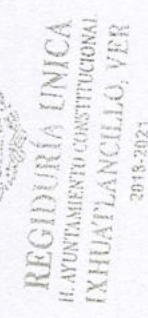 REGIDURÍA UNICA
H. AYUNTAMIENTO CONSTITUCIONAL
IXHUATLANCILLO, VER
2018-2021